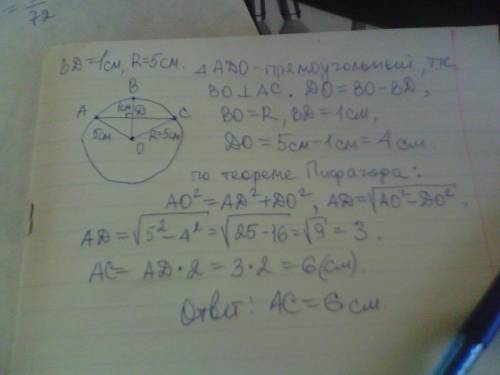 = 1/72
BD=1см, R=5см. △ADO-прямоугольный, т.к.
BO⊥AC. DO=BO-BD,
BO=R, BD=1см,
DO=5см-1см=4см.
B
1см D
A C
5см R=5см
O
по теореме Пифагора:
AO²=AD²+DO², AD=√AO²-DO².
AD=√5²-4²=√25-16=√9=3.
AC= AD·2=3·2=6(см).
Ответ: AC=6см.